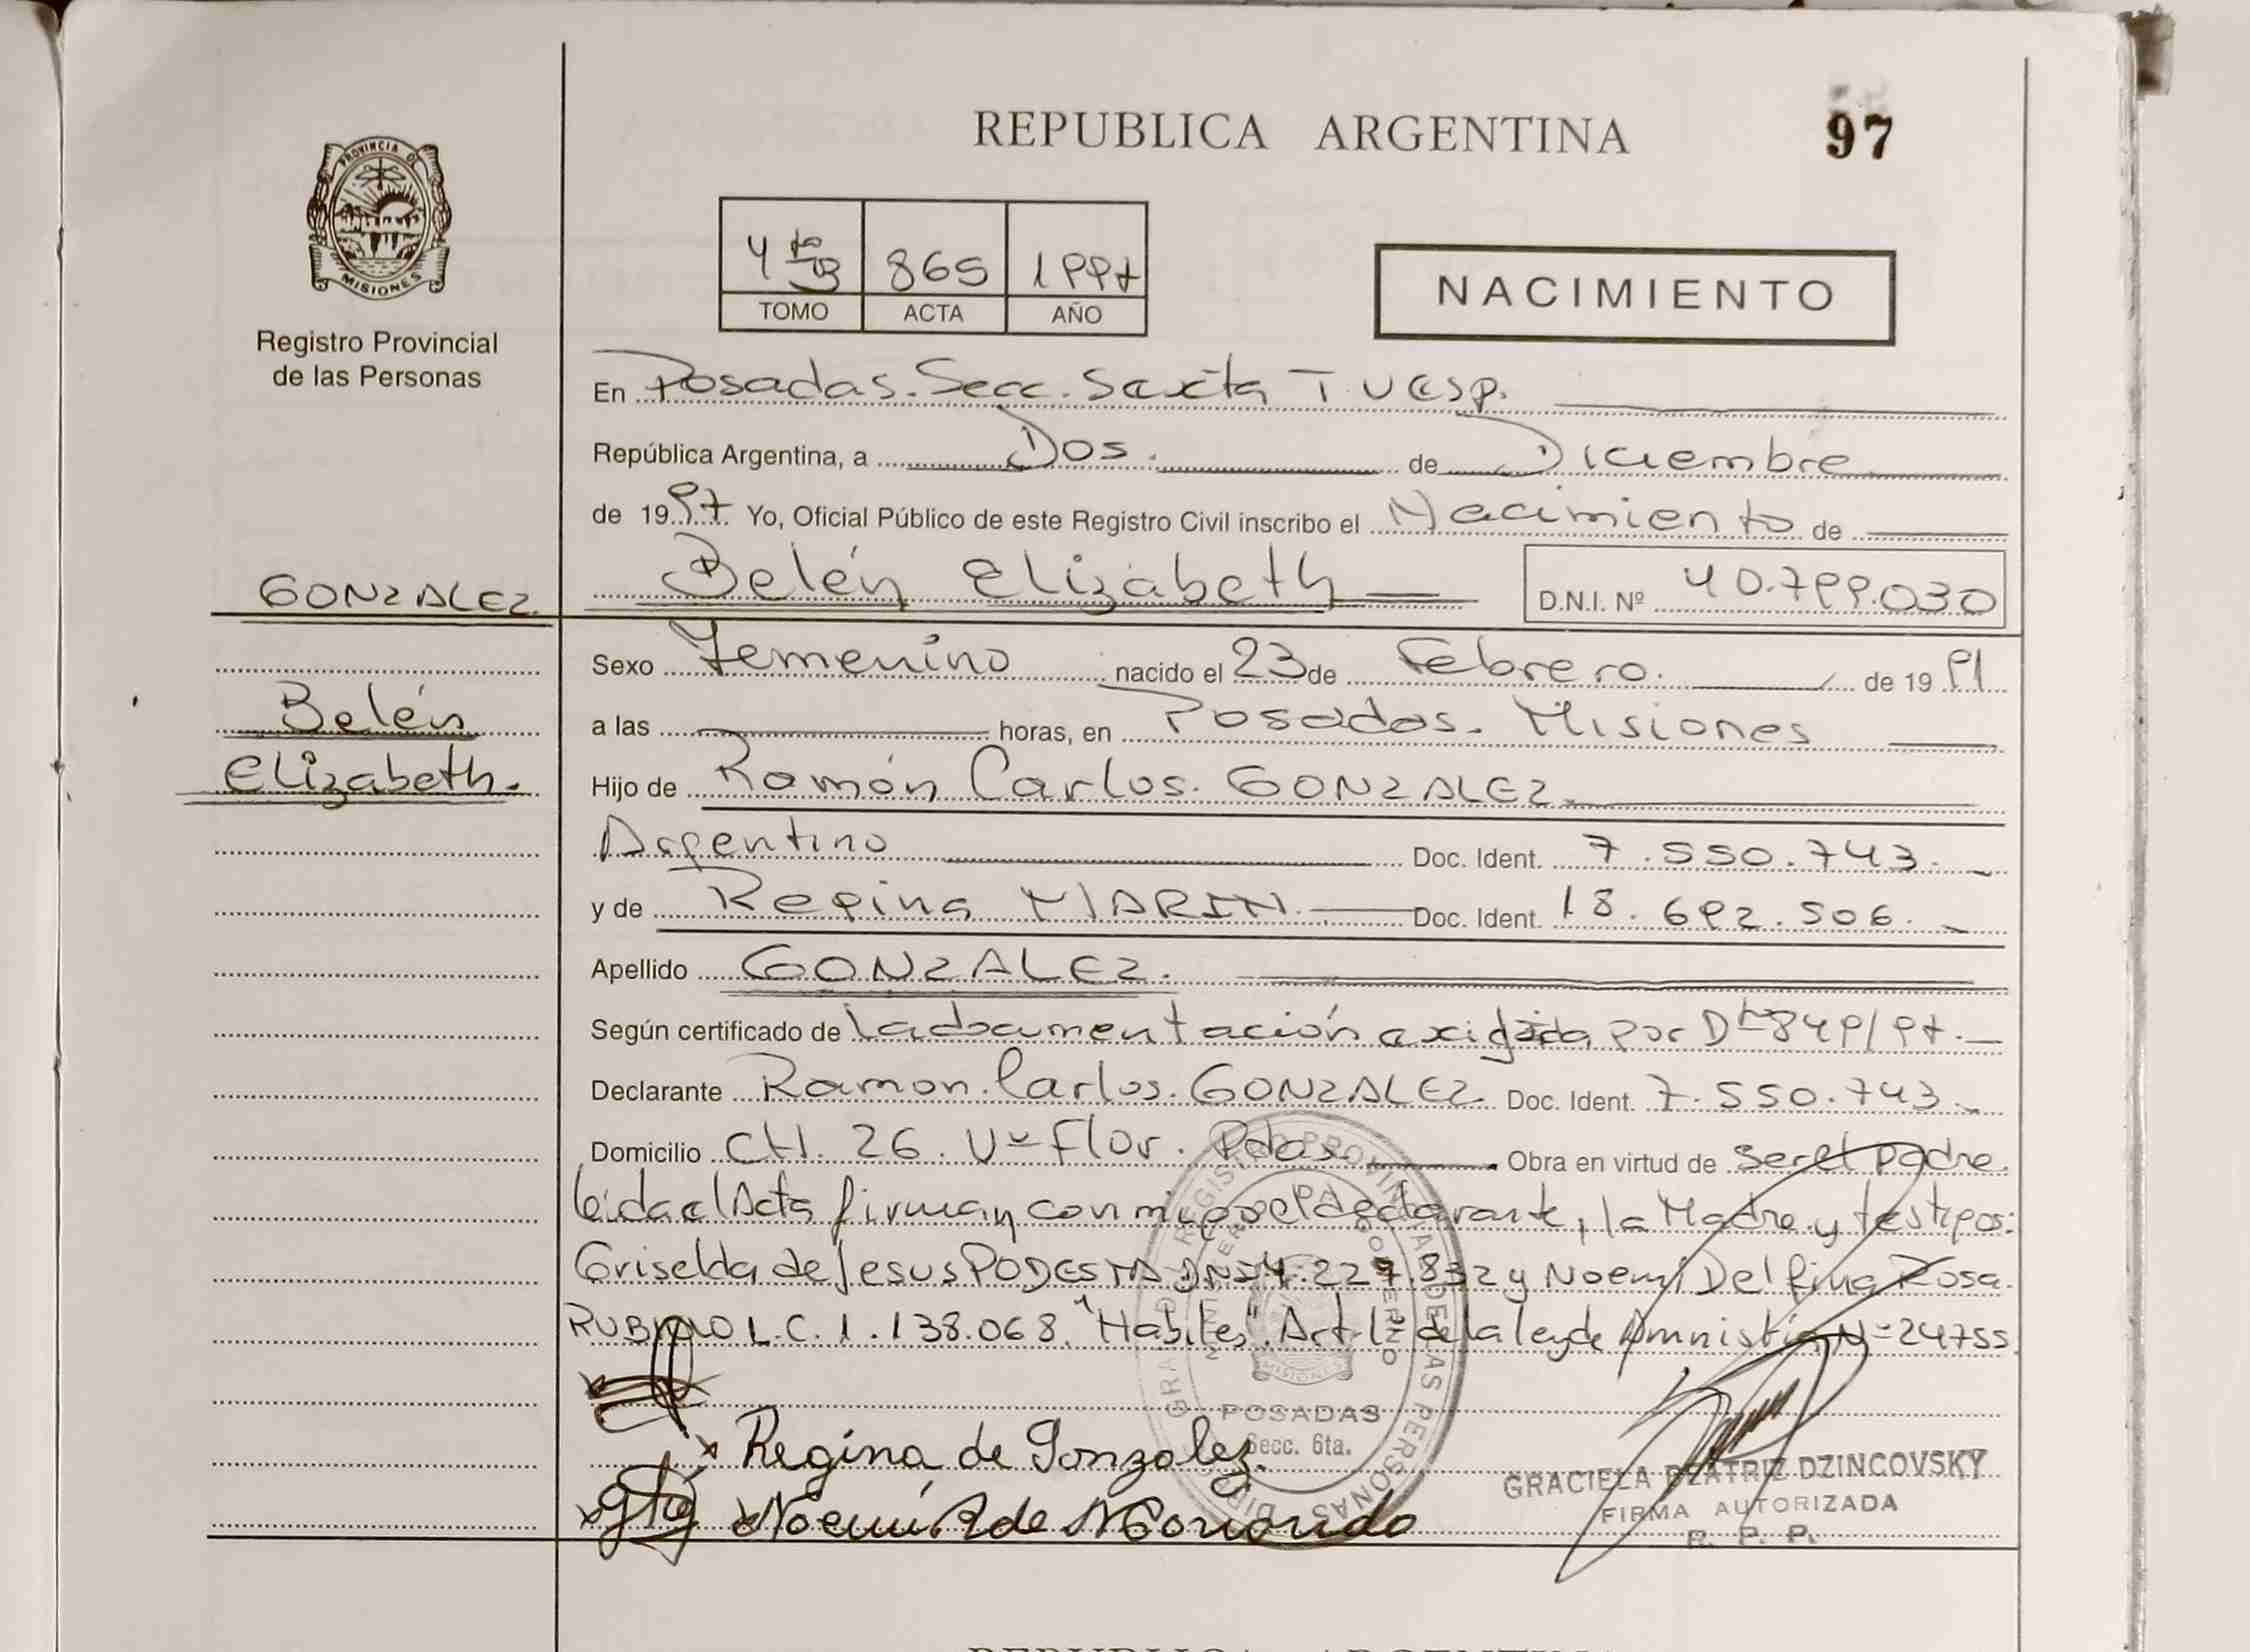 REPUBLICA ARGENTINA
97
PROVINCIA DE
MISIONES
Registro Provincial
de las Personas
4to B 865 1997
TOMO ACTA AÑO
NACIMIENTO
En Posadas. Secc. Sexta T. Vesp.
República Argentina, a Dos. de Diciembre
de 1997 Yo, Oficial Público de este Registro Civil inscribo el Nacimiento de
GONZALEZ
Belén Elizabeth
D.N.I. Nº 40.799.030
Sexo Femenino nacido el 23 de Febrero. de 1991
Belén
a las horas, en Posadas. Misiones
Elizabeth.
Hijo de Ramón Carlos. GONZALEZ.
Argentino Doc. Ident. 7.550.743.
y de Regina MARIN. Doc. Ident. 18.692.506.
Apellido GONZALEZ.
Según certificado de la documentación exigida por Dto 849/97.
Declarante Ramon. Carlos. GONZALEZ. Doc. Ident. 7.550.743.
Domicilio CH. 26. Vª Flor. Pdas. Obra en virtud de ser el padre.
leida el Acta firman conmigo el declarante, la Madre y testigos:
Griselda de Jesus PODESTA DNI 4.227.832 y Noemi Delfina Rosa
L.C. 1.138.068. "Habiles". Art. 1º de la ley de Amnistía Nº 24755
POSADAS
Secc. 6ta.
Regina de Gonzalez.
Noemí R de
GRACIELA BEATRIZ DZINCOVSKY
FIRMA AUTORIZADA
R. P. P.